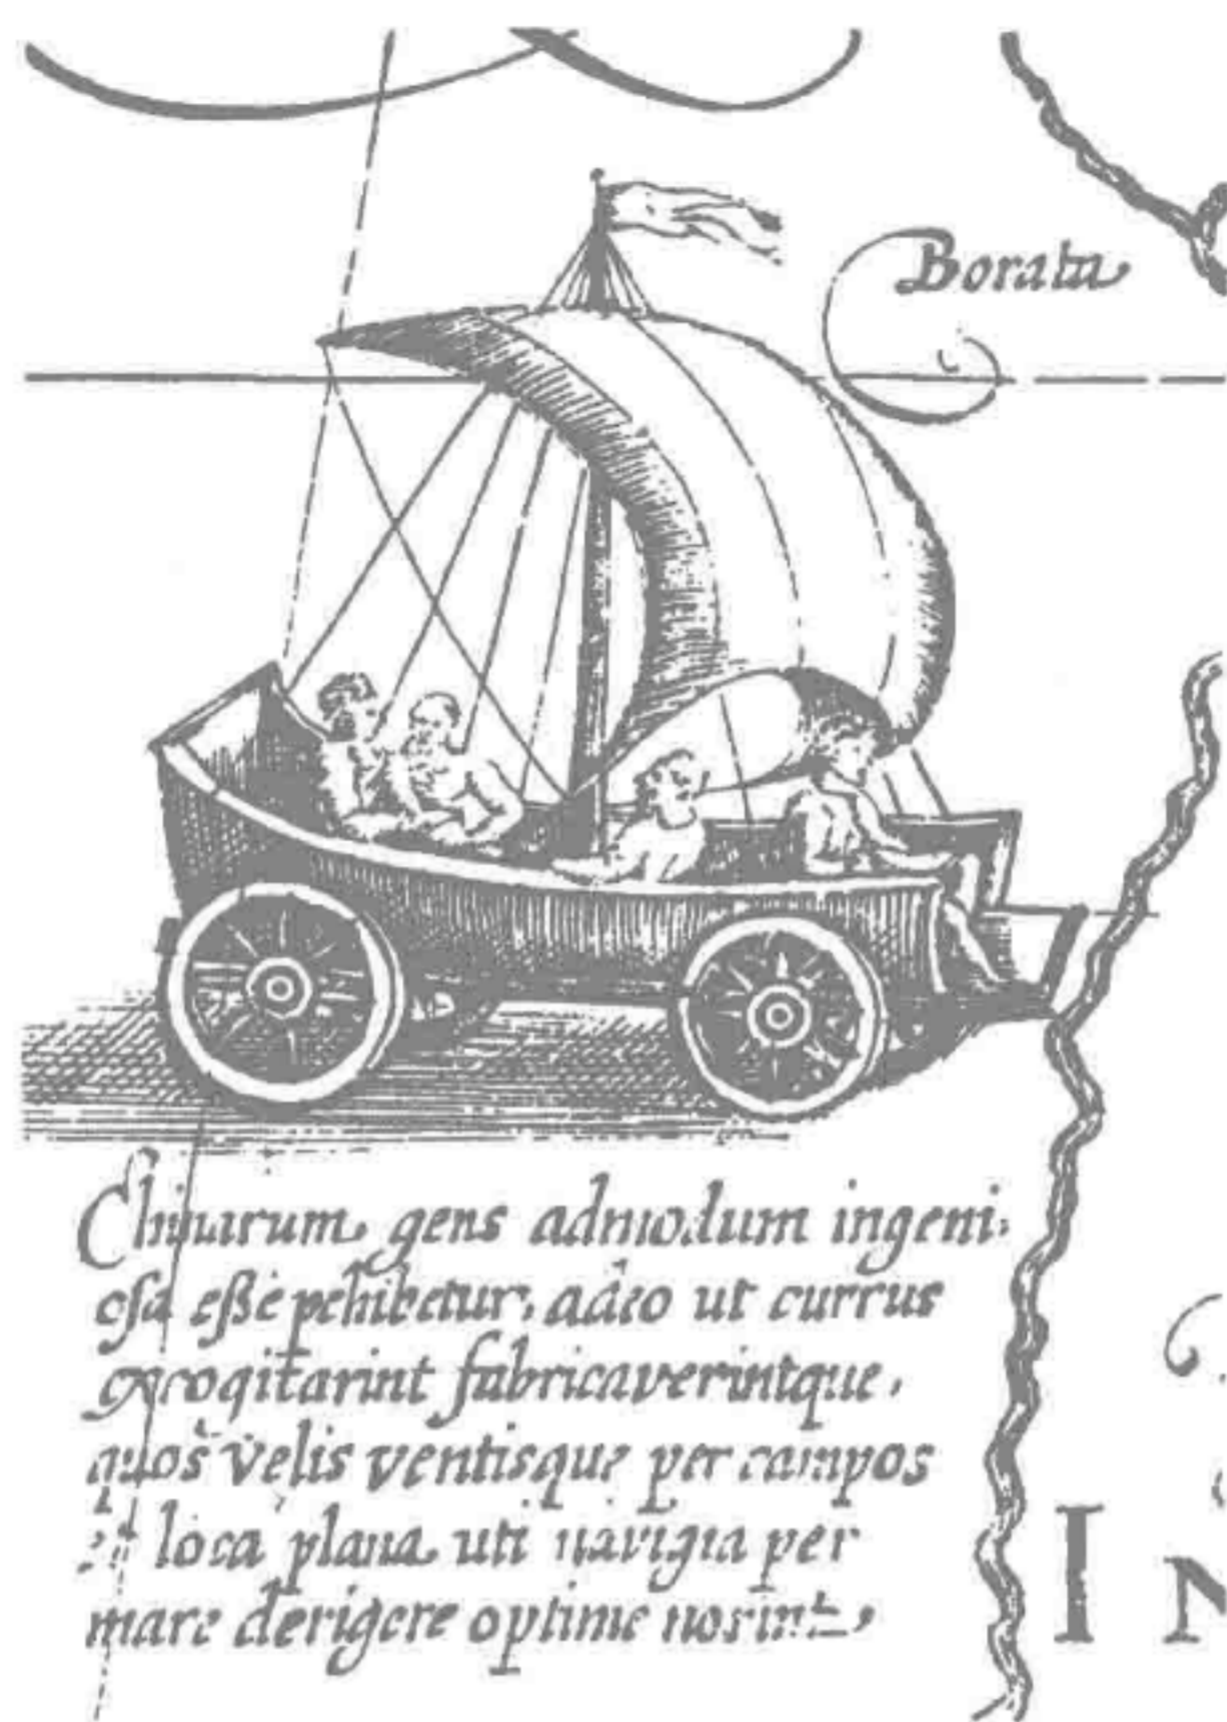 Boratu
Chinarum gens admodum ingeni:
osa eße pehibetur, adeo ut currus
excogitarint fabricaverintque,
quos velis ventisque per campos
et loca plana uti navigia per
mare derigere optime norint,
I N